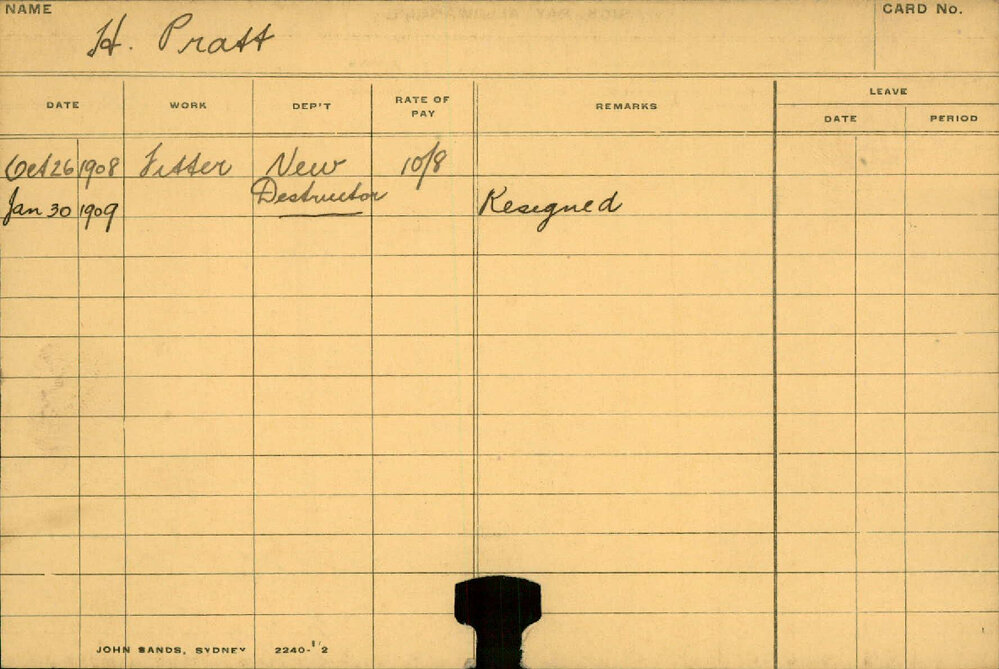 NAME H. Pratt CARD No.
DATE WORK DEP'T RATE OF PAY REMARKS LEAVE
DATE PERIOD
Oct 26 1908 Fitter New 10/8
Destructor
Jan 30 1909 Resigned
JOHN SANDS, SYDNEY 2240-1/2